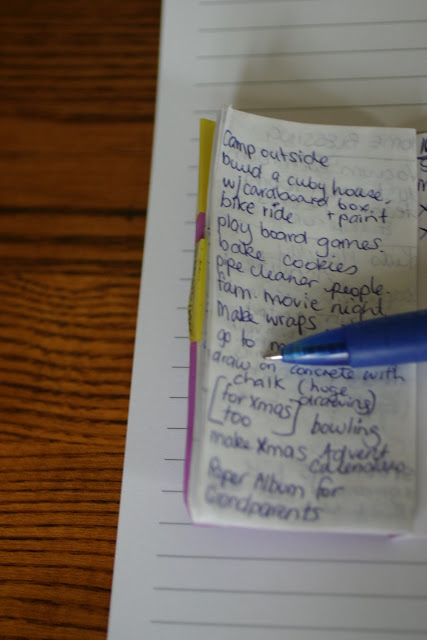 Camp outside
build a cuby house.
w/cardboard box.
bike ride + paint
play board games
bake cookies
pipe cleaner people.
fam. movie night
make wraps
go to
draw on concrete with
chalk (huge
drawing)
[for xmas
too] bowling
make Xmas Advent
calendars
Paper Album for
Grandparents